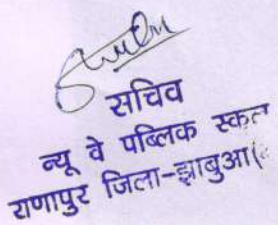 सचिव
न्यू वे पब्लिक स्कूल
राणापुर जिला-झाबुआ(